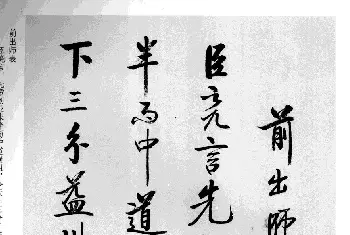 前出师
臣亮言先
半而中道
下三分益州
前出师表